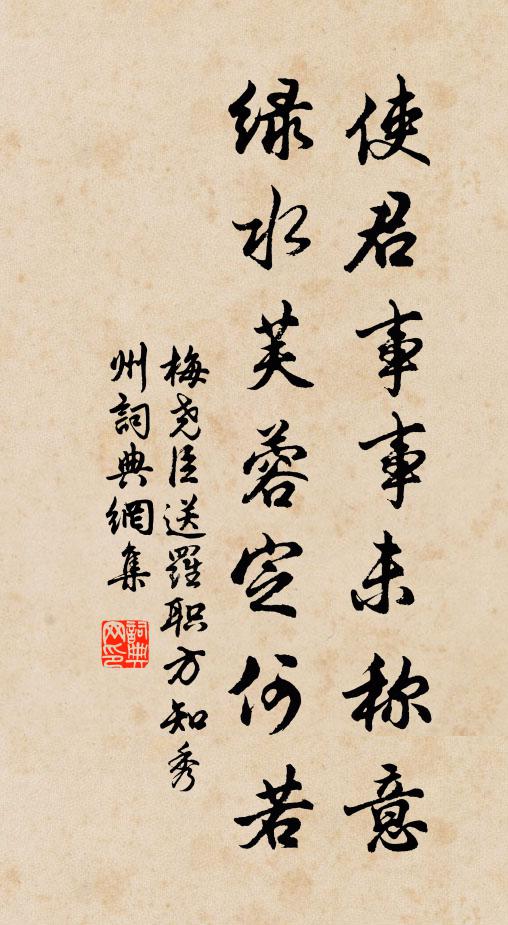 使君事事未称意
绿水芙蓉定何若
梅尧臣送羅职方知秀
州詞典網集
詞典网印